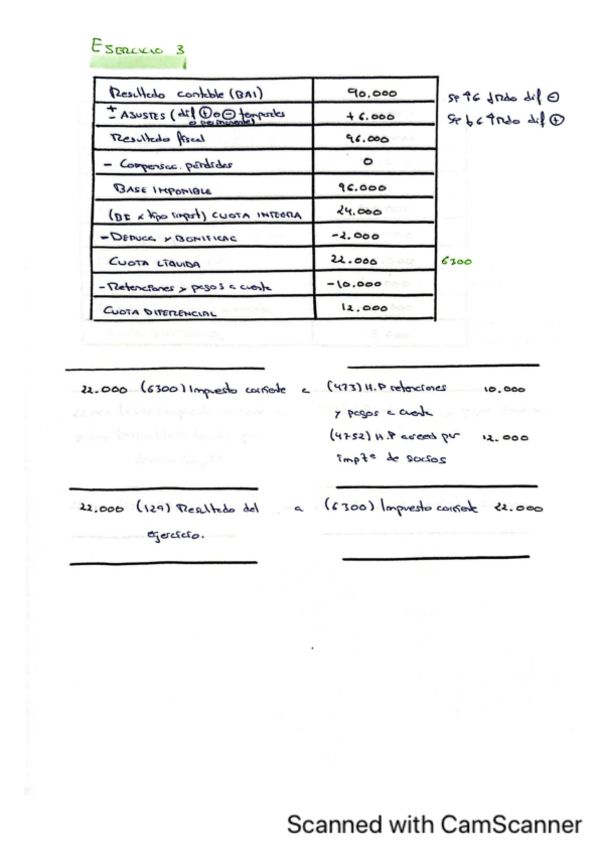 Ejercicio 3
Resultado contable (BAI) 90.000
± AJUSTES (dif + o - temporales o permanentes) +6.000
Resultado fiscal 96.000
- Compensac. pérdidas 0
BASE IMPONIBLE 96.000
(BI x tipo impst) CUOTA INTEGRA 24.000
- DEDUCC y BONIFICAC -2.000
CUOTA LÍQUIDA 22.000 6300
- Retenciones y pagos a cuenta -10.000
CUOTA DIFERENCIAL 12.000
22.000 (6300) Impuesto corriente a (473) H.P retenciones 10.000
y pagos a cuenta
(4752) H.P acreed por 12.000
impte de socios
22.000 (129) Resultado del a (6300) Impuesto corriente 22.000
ejercicio.
Scanned with CamScanner